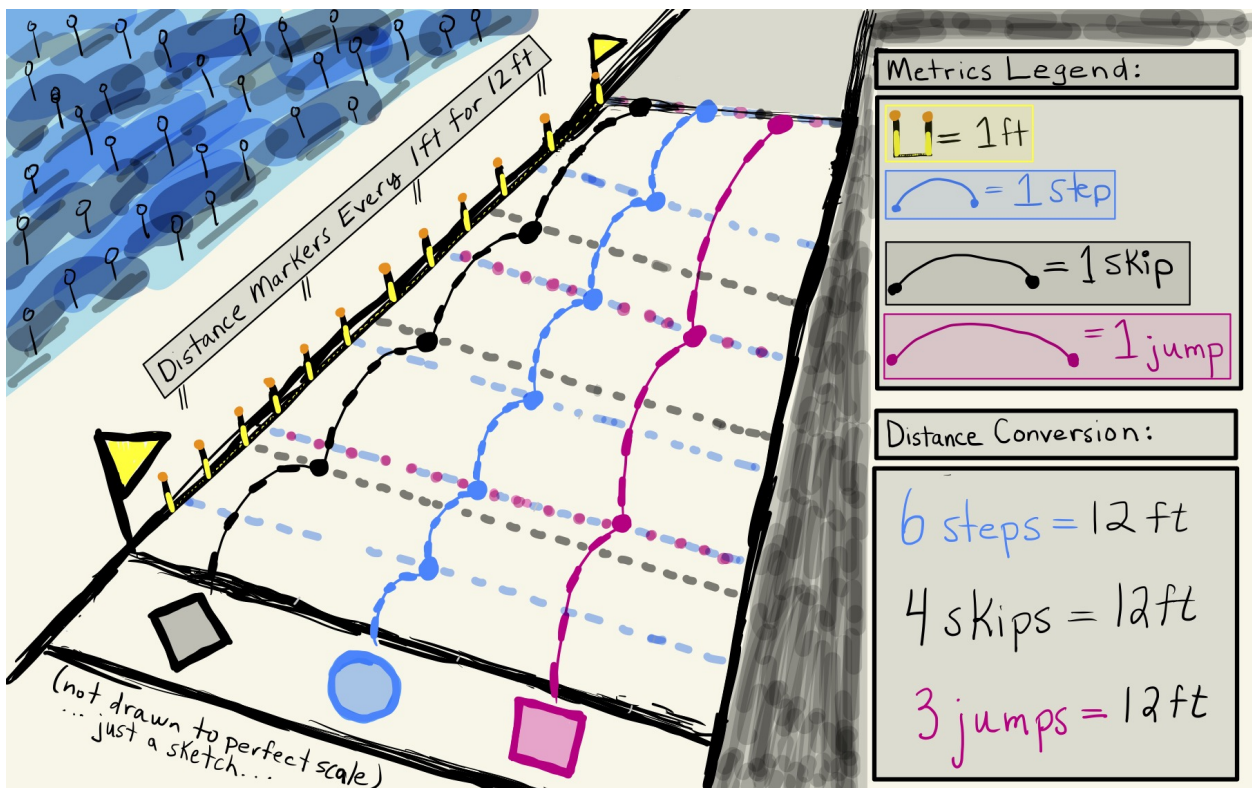 Distance Markers Every 1ft for 12ft
(not drawn to perfect scale)
... just a sketch...
Metrics Legend:
= 1ft
= 1 step
= 1 skip
= 1 jump
Distance Conversion:
6 steps = 12 ft
4 skips = 12ft
3 jumps = 12ft